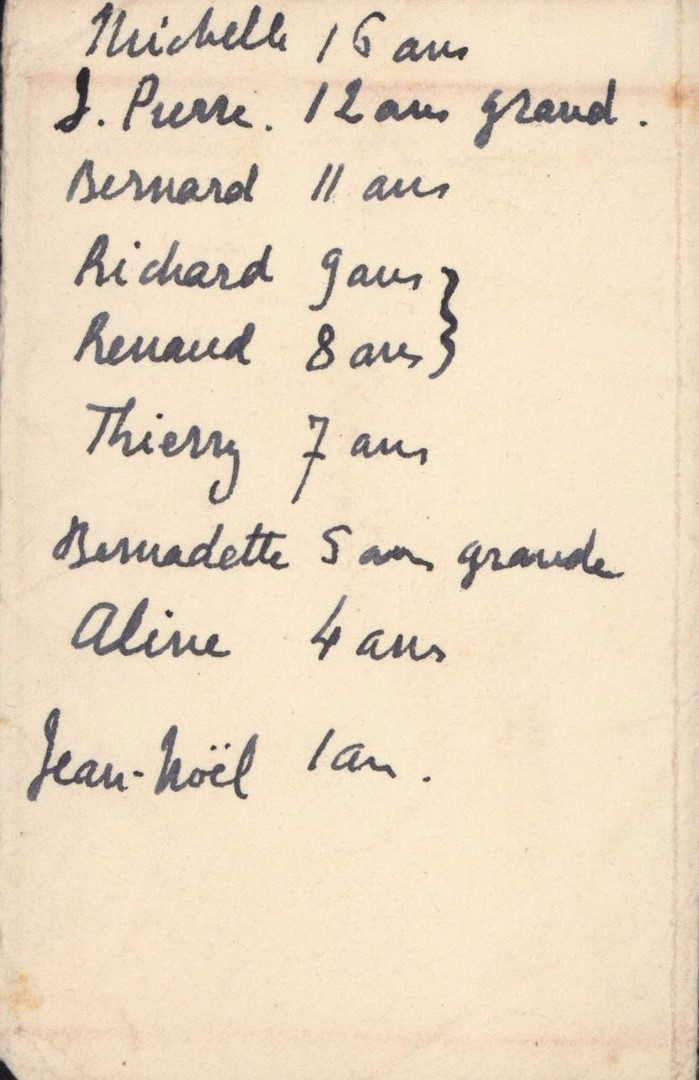 Michelle 16 ans
J. Pierre. 12 ans grand.
Bernard 11 ans
Richard 9 ans }
Renaud 8 ans }
Thierry 7 ans
Bernadette 5 ans grande
Aline 4 ans
Jean-Noël 1 an.